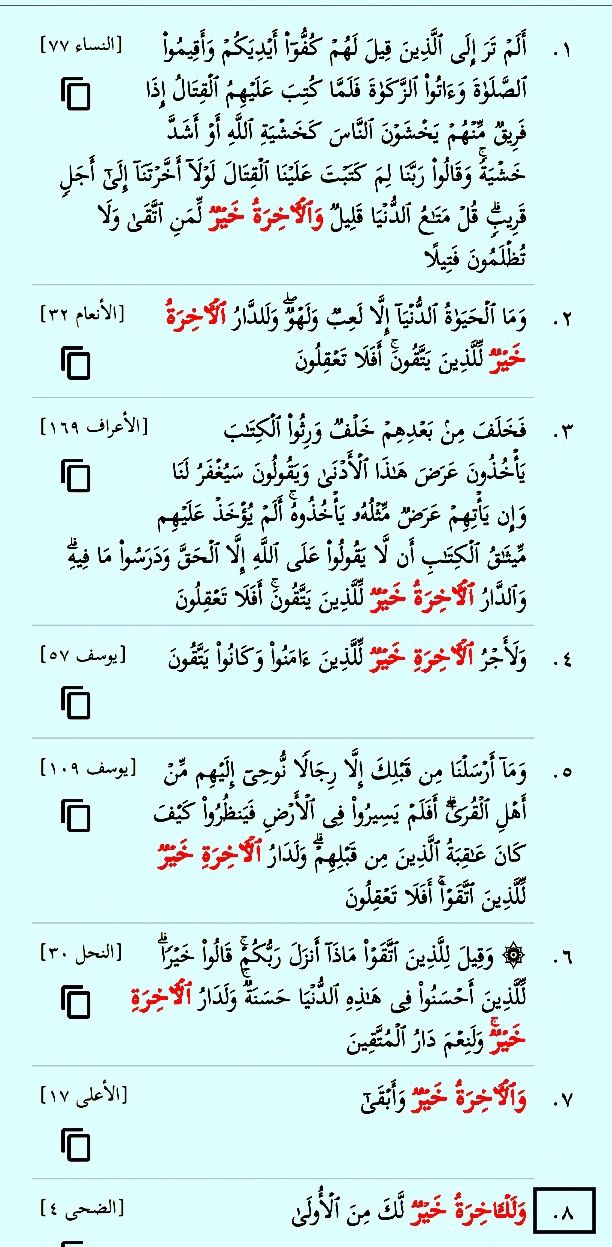 ١. أَلَمْ تَرَ إِلَى ٱلَّذِينَ قِيلَ لَهُمْ كُفُّوٓا۟ أَيْدِيَكُمْ وَأَقِيمُوا۟ [النساء ٧٧]
ٱلصَّلَوٰةَ وَءَاتُوا۟ ٱلزَّكَوٰةَ فَلَمَّا كُتِبَ عَلَيْهِمُ ٱلْقِتَالُ إِذَا
فَرِيقٌ مِّنْهُمْ يَخْشَوْنَ ٱلنَّاسَ كَخَشْيَةِ ٱللَّهِ أَوْ أَشَدَّ
خَشْيَةً ۚ وَقَالُوا۟ رَبَّنَا لِمَ كَتَبْتَ عَلَيْنَا ٱلْقِتَالَ لَوْلَآ أَخَّرْتَنَآ إِلَىٰٓ أَجَلٍ
قَرِيبٍ ۗ قُلْ مَتَـٰعُ ٱلدُّنْيَا قَلِيلٌ وَٱلْـَٔاخِرَةُ خَيْرٌ لِّمَنِ ٱتَّقَىٰ وَلَا
تُظْلَمُونَ فَتِيلًا
٢. وَمَا ٱلْحَيَوٰةُ ٱلدُّنْيَآ إِلَّا لَعِبٌ وَلَهْوٌ ۖ وَلَلدَّارُ ٱلْـَٔاخِرَةُ [الأنعام ٣٢]
خَيْرٌ لِّلَّذِينَ يَتَّقُونَ ۗ أَفَلَا تَعْقِلُونَ
٣. فَخَلَفَ مِنۢ بَعْدِهِمْ خَلْفٌ وَرِثُوا۟ ٱلْكِتَـٰبَ [الأعراف ١٦٩]
يَأْخُذُونَ عَرَضَ هَـٰذَا ٱلْأَدْنَىٰ وَيَقُولُونَ سَيُغْفَرُ لَنَا
وَإِن يَأْتِهِمْ عَرَضٌ مِّثْلُهُۥ يَأْخُذُوهُ ۚ أَلَمْ يُؤْخَذْ عَلَيْهِم
مِّيثَـٰقُ ٱلْكِتَـٰبِ أَن لَّا يَقُولُوا۟ عَلَى ٱللَّهِ إِلَّا ٱلْحَقَّ وَدَرَسُوا۟ مَا فِيهِ ۗ
وَٱلدَّارُ ٱلْـَٔاخِرَةُ خَيْرٌ لِّلَّذِينَ يَتَّقُونَ ۗ أَفَلَا تَعْقِلُونَ
٤. وَلَأَجْرُ ٱلْـَٔاخِرَةِ خَيْرٌ لِّلَّذِينَ ءَامَنُوا۟ وَكَانُوا۟ يَتَّقُونَ [يوسف ٥٧]
٥. وَمَآ أَرْسَلْنَا مِن قَبْلِكَ إِلَّا رِجَالًا نُّوحِىٓ إِلَيْهِم مِّنْ [يوسف ١٠٩]
أَهْلِ ٱلْقُرَىٰٓ ۗ أَفَلَمْ يَسِيرُوا۟ فِى ٱلْأَرْضِ فَيَنظُرُوا۟ كَيْفَ
كَانَ عَـٰقِبَةُ ٱلَّذِينَ مِن قَبْلِهِمْ ۗ وَلَدَارُ ٱلْـَٔاخِرَةِ خَيْرٌ
لِّلَّذِينَ ٱتَّقَوْا۟ ۗ أَفَلَا تَعْقِلُونَ
٦. ۞ وَقِيلَ لِلَّذِينَ ٱتَّقَوْا۟ مَاذَآ أَنزَلَ رَبُّكُمْ ۚ قَالُوا۟ خَيْرًا ۗ [النحل ٣٠]
لِّلَّذِينَ أَحْسَنُوا۟ فِى هَـٰذِهِ ٱلدُّنْيَا حَسَنَةٌ ۚ وَلَدَارُ ٱلْـَٔاخِرَةِ
خَيْرٌ ۚ وَلَنِعْمَ دَارُ ٱلْمُتَّقِينَ
٧. وَٱلْـَٔاخِرَةُ خَيْرٌ وَأَبْقَىٰٓ [الأعلى ١٧]
٨. وَلَلْـَٔاخِرَةُ خَيْرٌ لَّكَ مِنَ ٱلْأُولَىٰ [الضحى ٤]